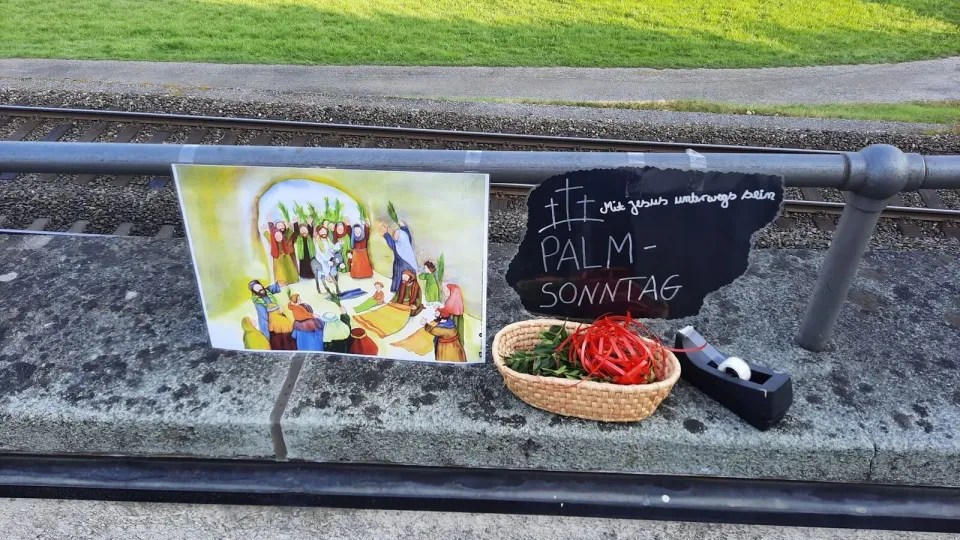 Mit Jesus unterwegs sein
PALM-
SONNTAG